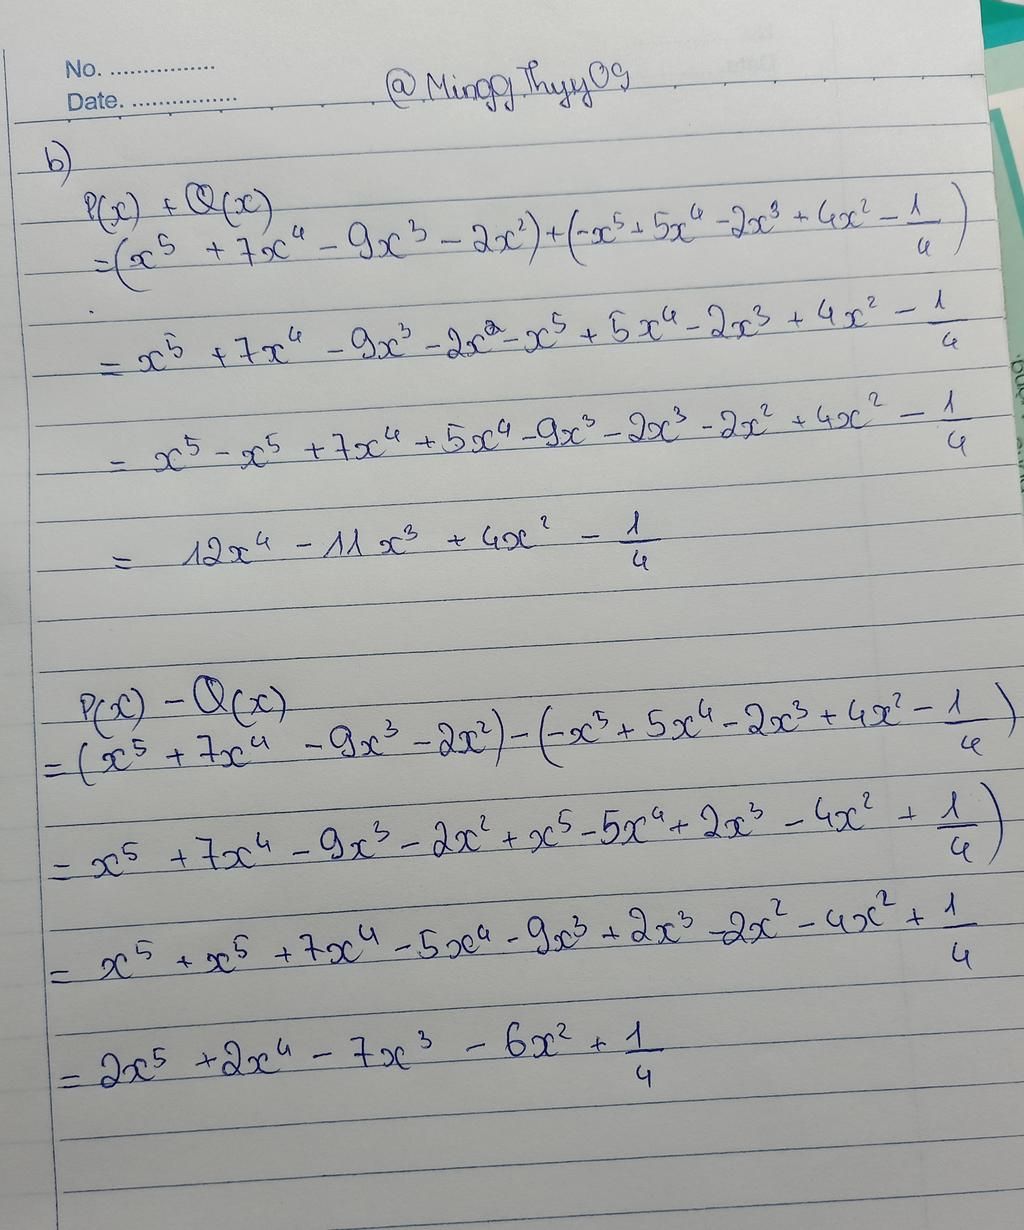 No. ................
Date. ................
@MinggThyy09
b)
P(x) + Q(x)
= (x⁵ + 7x⁴ - 9x³ - 2x²) + (-x⁵ + 5x⁴ - 2x³ + 4x² - 1/4)
= x⁵ + 7x⁴ - 9x³ - 2x² - x⁵ + 5x⁴ - 2x³ + 4x² - 1/4
= x⁵ - x⁵ + 7x⁴ + 5x⁴ - 9x³ - 2x³ - 2x² + 4x² - 1/4
= 12x⁴ - 11x³ + 4x² - 1/4
P(x) - Q(x)
= (x⁵ + 7x⁴ - 9x³ - 2x²) - (-x⁵ + 5x⁴ - 2x³ + 4x² - 1/4)
= x⁵ + 7x⁴ - 9x³ - 2x² + x⁵ - 5x⁴ + 2x³ - 4x² + 1/4)
= x⁵ + x⁵ + 7x⁴ - 5x⁴ - 9x³ + 2x³ - 2x² - 4x² + 1/4
= 2x⁵ + 2x⁴ - 7x³ - 6x² + 1/4